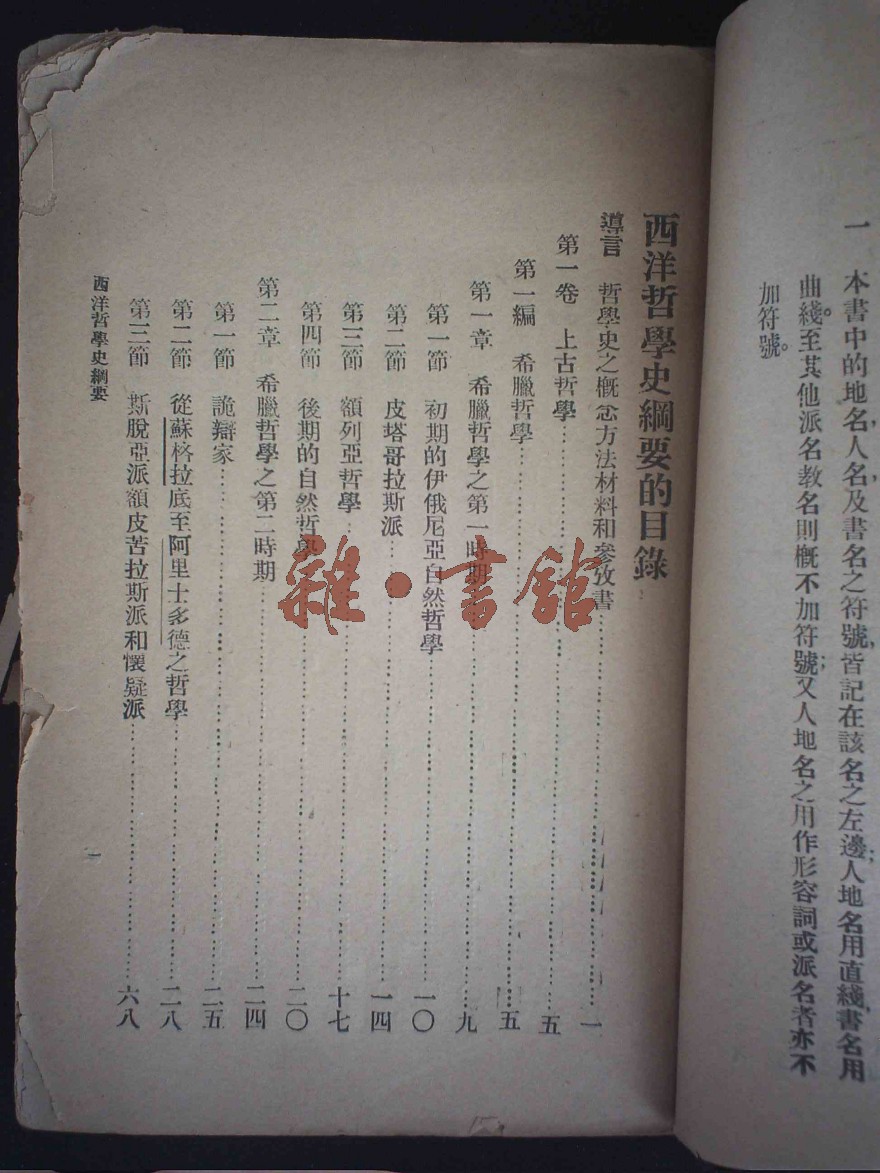 一　本書中的地名，人名，及書名之符號，皆記在該名之左邊；人地名用直綫，書名用
曲綫。至其他派名教名則概不加符號；又人地名之用作形容詞或派名者亦不
加符號。
西洋哲學史綱要的目錄
導言　哲學史之概念方法材料和參攷書……一
第一卷　上古哲學……五
第一編　希臘哲學……五
第一章　希臘哲學之第一時期……九
第一節　初期的伊俄尼亞自然哲學……一〇
第二節　皮塔哥拉斯派……一四
第三節　額列亞哲學……十七
第四節　後期的自然哲學……二〇
第二章　希臘哲學之第二時期……二四
第一節　詭辯家……二五
第二節　從蘇格拉底至阿里士多德之哲學……二八
第三節　斯脫亞派額皮苦拉斯派和懷疑派……六八
西洋哲學史綱要
一
雜·書館